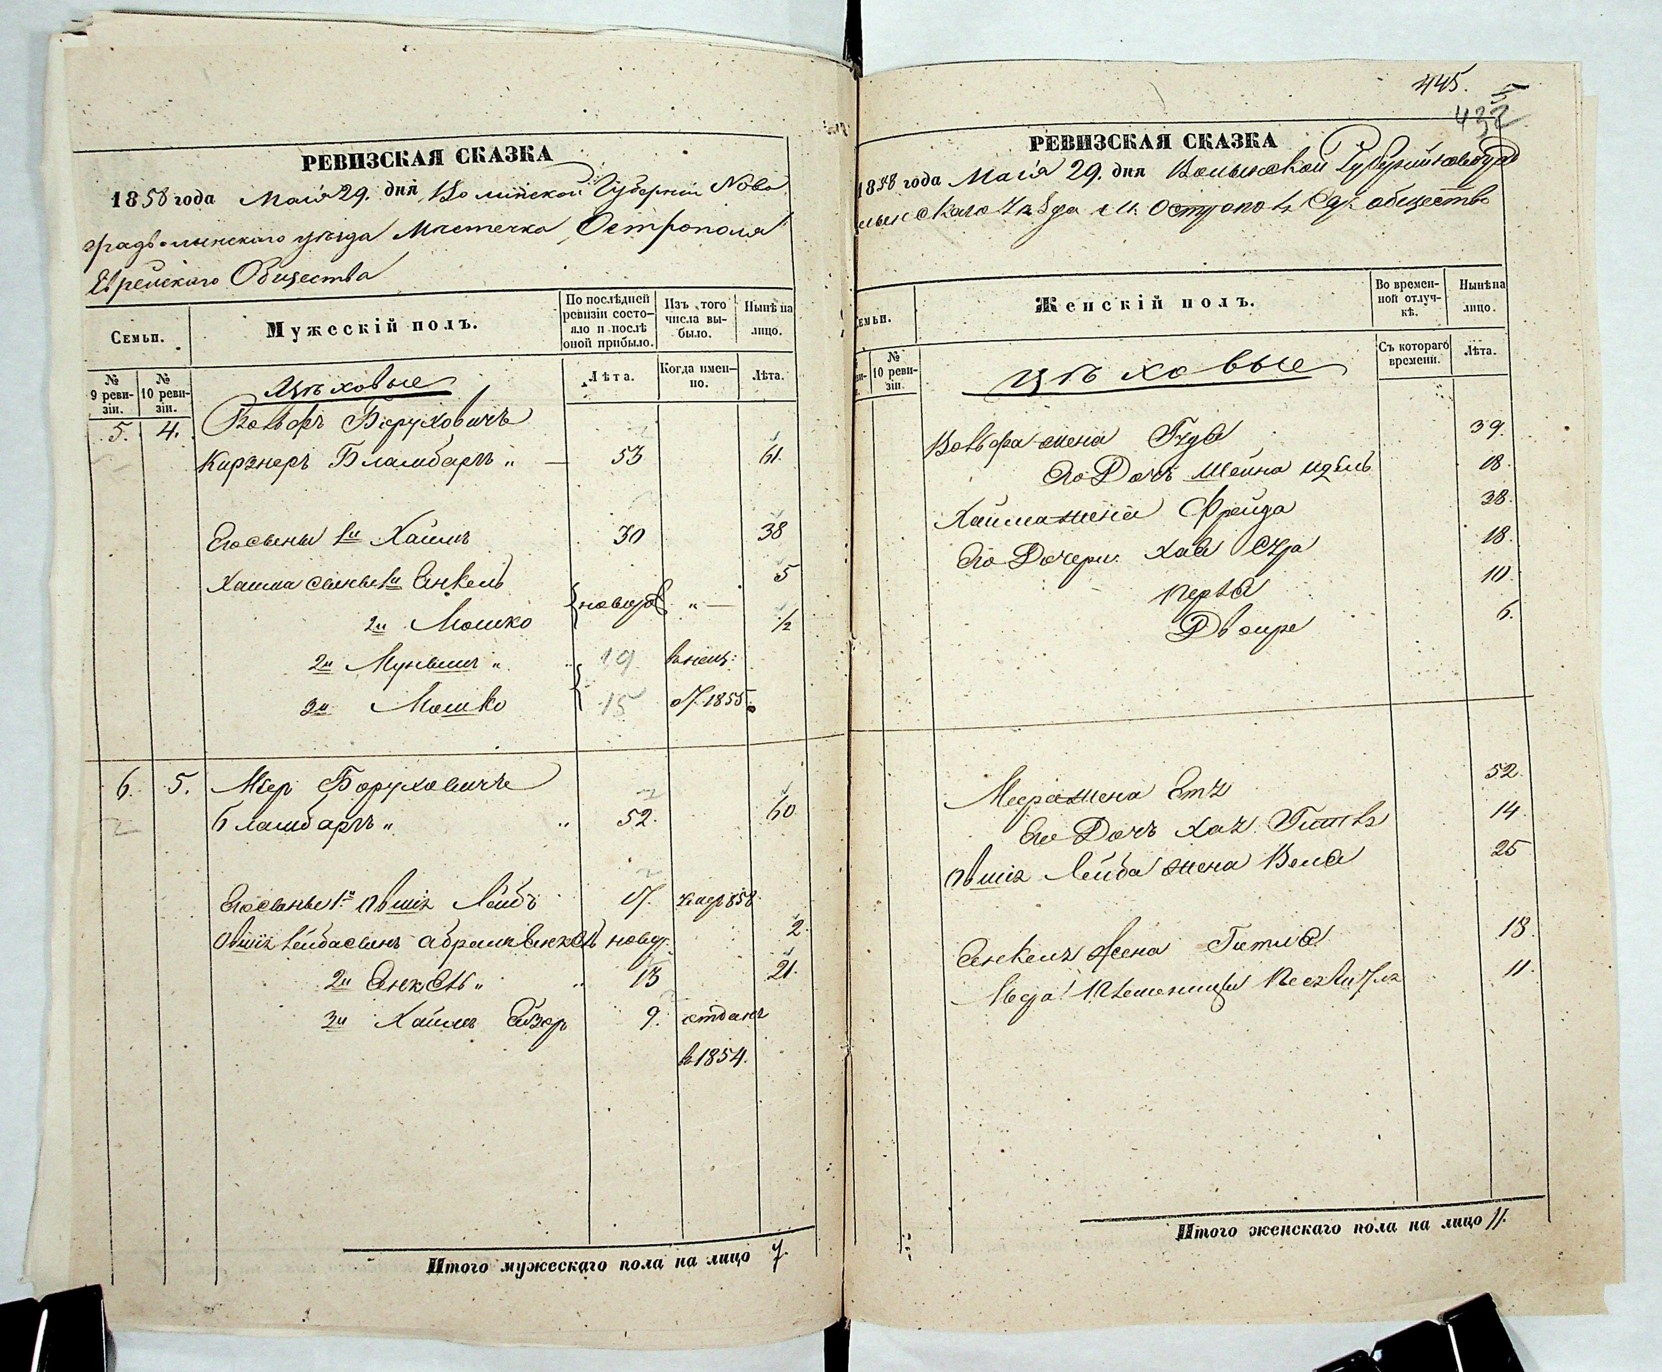 РЕВИЗСКАЯ СКАЗКА
1858 года Маія 29. дня Волынской Губерніи Ново
градволынскаго уѣзда Мѣстечка Острополя
Еврейскаго Общества
Семьи.
Мужескій полъ.
По послѣдней ревизіи состояло и послѣ оной прибыло.
Изъ того числа выбыло.
Нынѣ на лицо.
№ 9 ревизіи.
№ 10 ревизіи.
Цѣховые
Лѣта.
Когда именно.
Лѣта.
5. 4. Вольфъ Боруховичъ
Кирзнеръ Бламбаръ „ — 53 61.
Его сыны 1й Хаимъ 30 38
Хаима сыны 1й Янкель 5
новор „ —
2й Мошко 1/2
2й „ 19
3й Мошко 15 1855
6. 5. Меер Боруховичъ
Бламбаръ „ „ 52. 60
Его сыны 1й Овшія Лейбъ 17. 1858
Овшія Лейба сынъ Абрамъ Янкель новор. 2.
2й Янкель „ „ 13 21.
3й Хаимъ 9. отданъ
в 1854.
Итого мужескаго пола на лицо 7.
445.
432
РЕВИЗСКАЯ СКАЗКА
1858 года Маія 29. дня Волынской Губерніи Новоград
м. общество
Семьи.
Женскій полъ.
Во временной отлучкѣ.
Нынѣ на лицо.
№ 10 ревизіи.
Цѣховые
Съ котораго времени.
Лѣта.
Вольфа жена 39.
Его Дочь Шейна 18.
Хайма жена Фрейда 38.
Его Дочери Хая Сура 18.
Перля 10.
Двойре 6.
Меера жена Эти 52.
Его Дочь Хая Гитля 14.
Овшія Лейба жена Веля 25
Янкеля жена Гитля 18.
11.
Итого женскаго пола на лицо 11.